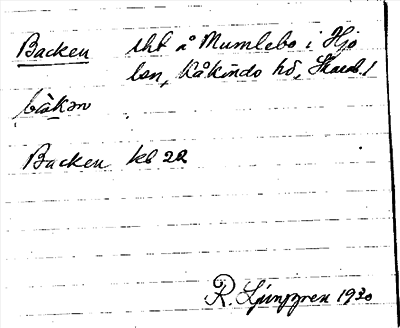 Backen uht å Mumlebo i Hjo
lsn, Kåkinds hd, Skarab. l
bàkən
Backen kb 22
R. Ljunggren 1930